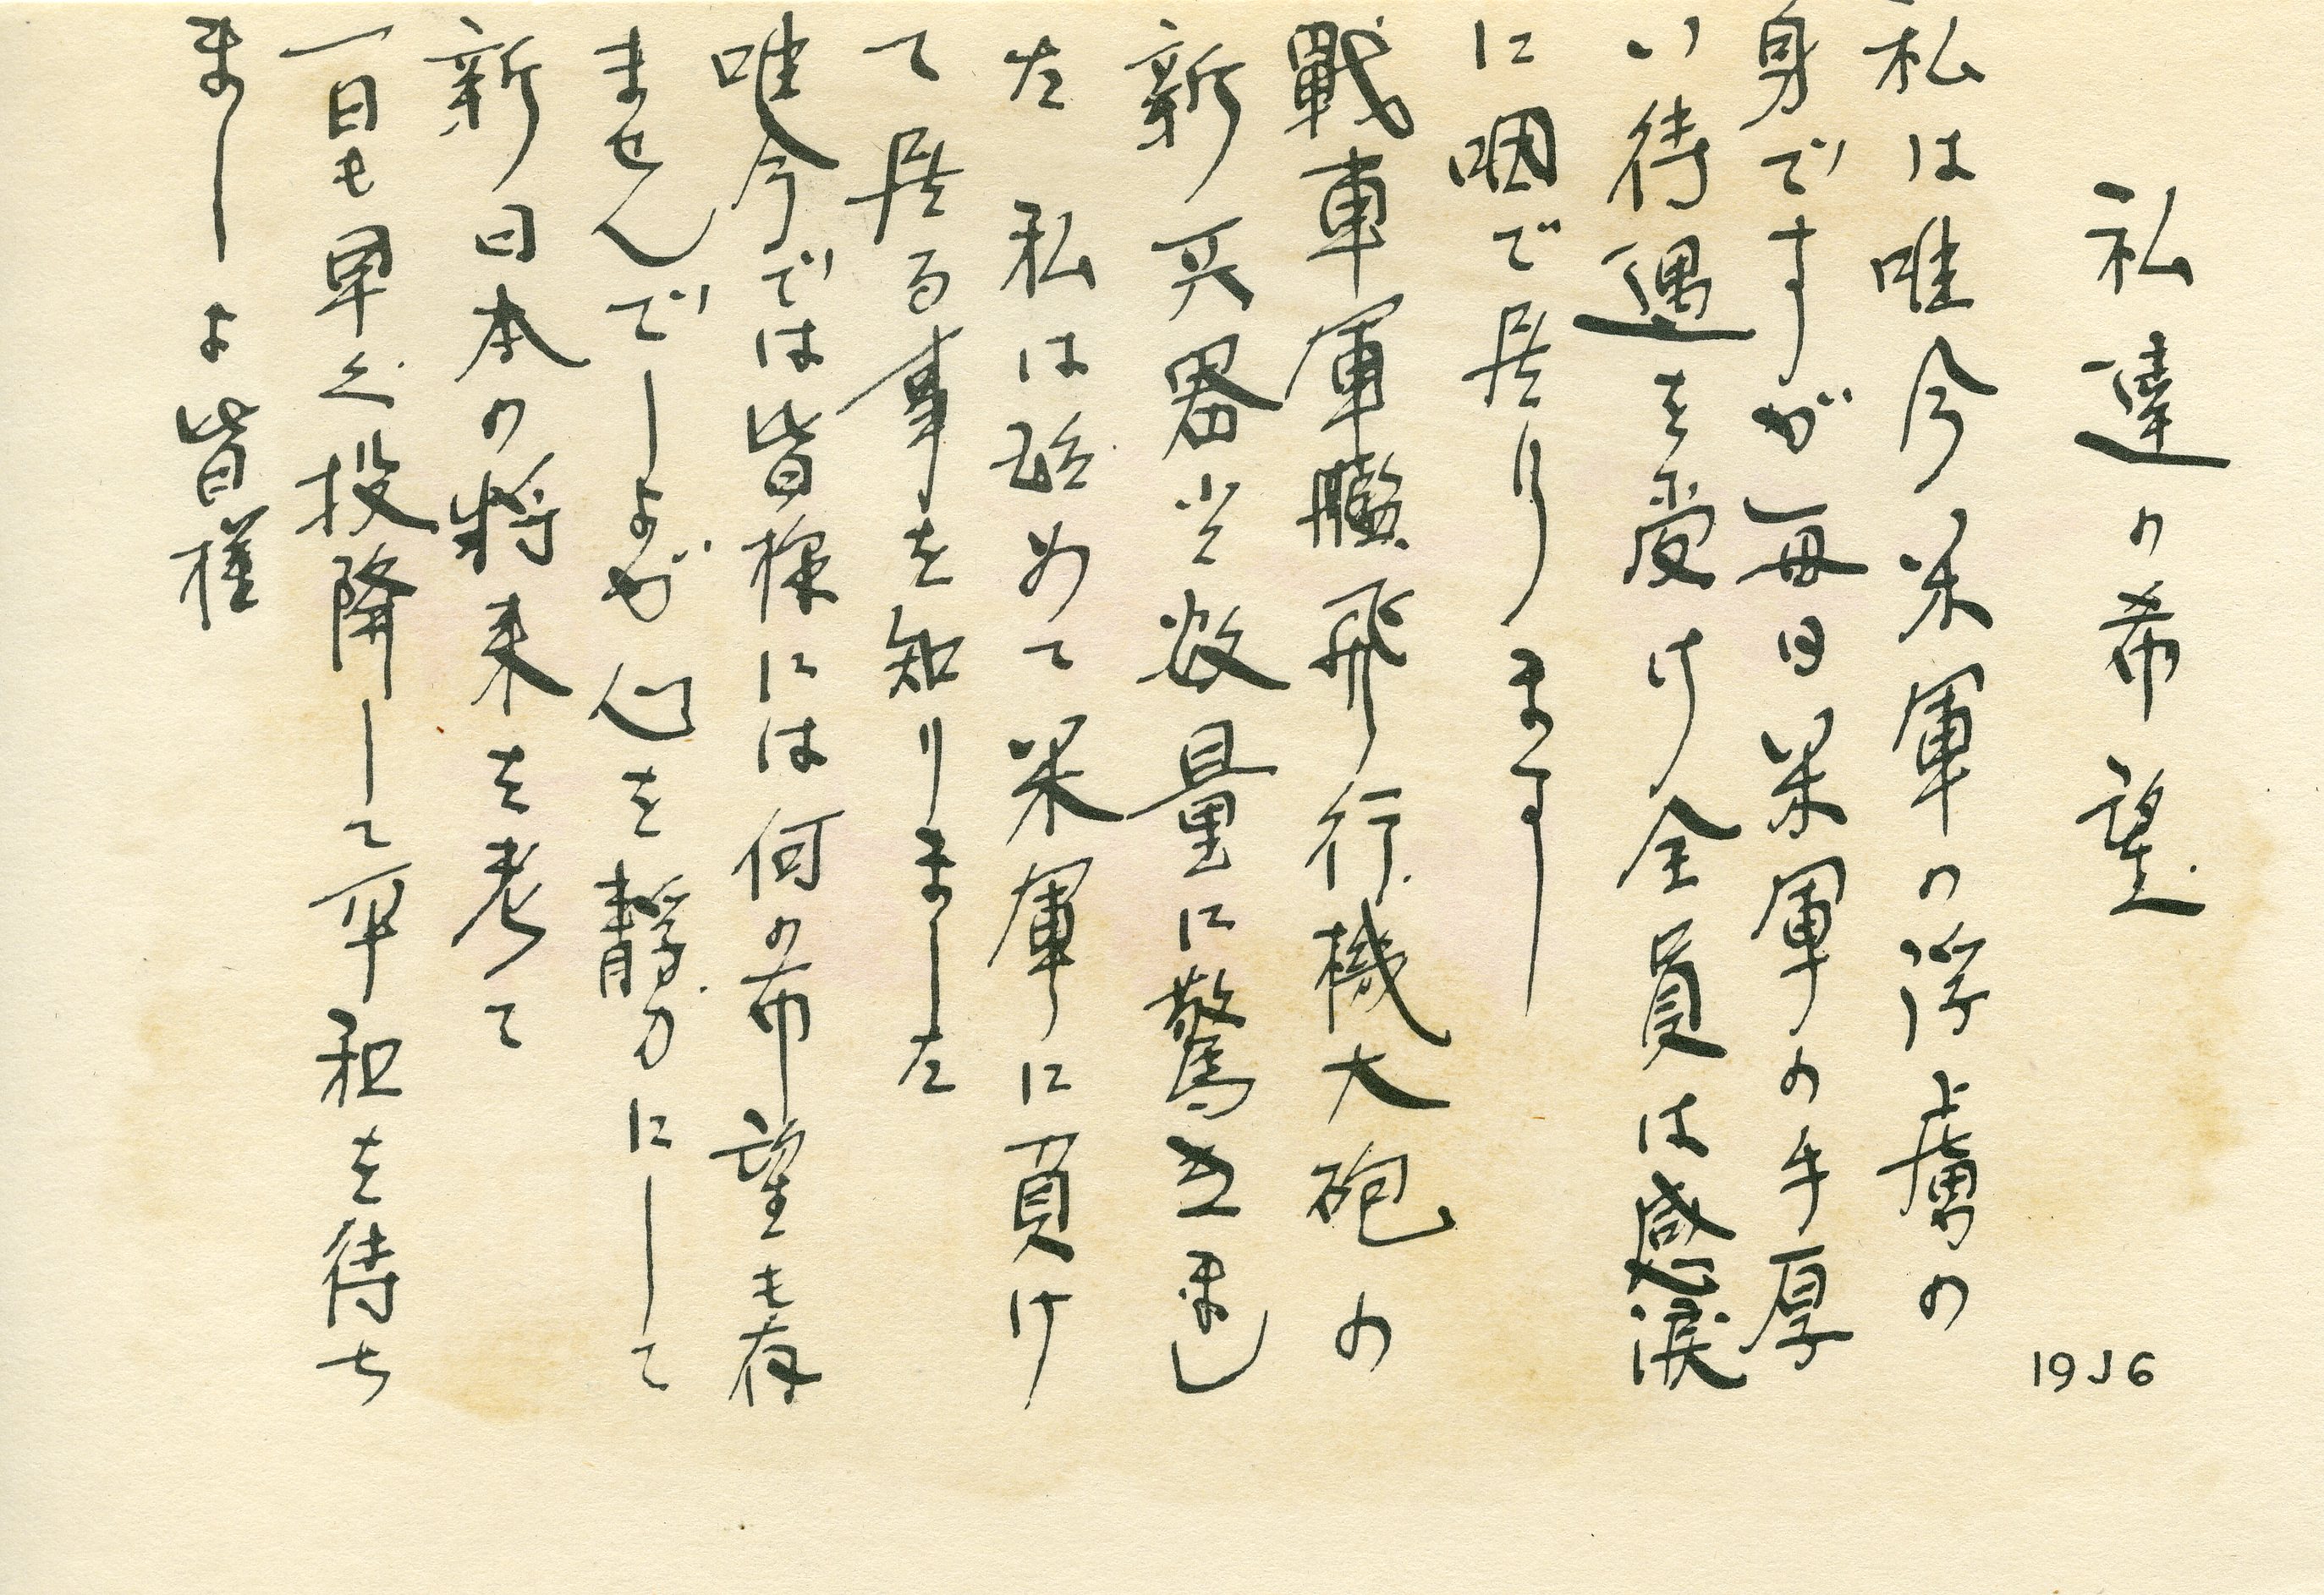 私達の希望
私は唯今米軍の俘虜の
身ですが毎日米軍の手厚
い待遇を受け全員は感涙
に咽で居ります
戰車軍艦飛行機大砲の
新兵器と数量に驚きまし
た 私は始めて米軍に負け
て居る事を知りました
唯今では皆様には何の希望も存
ませんでしよが心を静かにして
新日本の将来を考て
一日も早く投降して平和を待ち
ましよ皆様
19J6